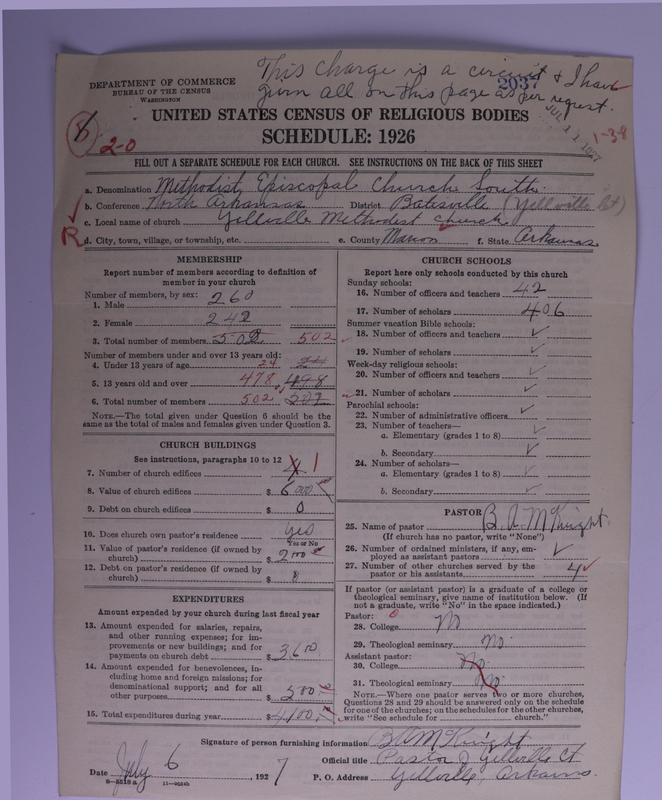 This charge is a circuit & I have
given all on this page as per request.
2037
JUL 11 1927
DEPARTMENT OF COMMERCE
BUREAU OF THE CENSUS
WASHINGTON
UNITED STATES CENSUS OF RELIGIOUS BODIES
SCHEDULE: 1926
6
2-0
1-3-8
FILL OUT A SEPARATE SCHEDULE FOR EACH CHURCH. SEE INSTRUCTIONS ON THE BACK OF THIS SHEET
a. Denomination Methodist Episcopal Church South
b. Conference North Arkansas District Batesville (Yellville Ct)
c. Local name of church Yellville Methodist Church
R
d. City, town, village, or township, etc. e. County Marion f. State Arkansas
MEMBERSHIP
Report number of members according to definition of
member in your church
Number of members, by sex:
1. Male 260
2. Female 242
3. Total number of members 502 502
Number of members under and over 13 years old:
4. Under 13 years of age 24
5. 13 years old and over 478 498
6. Total number of members 502
NOTE.—The total given under Question 6 should be the
same as the total of males and females given under Question 3.
CHURCH BUILDINGS
See instructions, paragraphs 10 to 12
7. Number of church edifices 4 1
8. Value of church edifices $ 6000
9. Debt on church edifices $ 0
10. Does church own pastor's residence yes
Yes or No
11. Value of pastor's residence (if owned by
church) $ 2000
12. Debt on pastor's residence (if owned by
church) $ 0
EXPENDITURES
Amount expended by your church during last fiscal year
13. Amount expended for salaries, repairs,
and other running expenses; for im-
provements or new buildings; and for
payments on church debt $ 3600
14. Amount expended for benevolences, in-
cluding home and foreign missions; for
denominational support; and for all
other purposes $ 500
15. Total expenditures during year $ 4100
CHURCH SCHOOLS
Report here only schools conducted by this church
Sunday schools:
16. Number of officers and teachers 42
17. Number of scholars 406
Summer vacation Bible schools:
18. Number of officers and teachers ✓
19. Number of scholars ✓
Week-day religious schools:
20. Number of officers and teachers ✓
21. Number of scholars ✓
Parochial schools:
22. Number of administrative officers ✓
23. Number of teachers—
a. Elementary (grades 1 to 8) ✓
b. Secondary ✓
24. Number of scholars—
a. Elementary (grades 1 to 8) ✓
b. Secondary ✓
PASTOR
25. Name of pastor B. A. McKnight
(If church has no pastor, write "None")
26. Number of ordained ministers, if any, em-
ployed as assistant pastors ✓
27. Number of other churches served by the
pastor or his assistants 4
If pastor (or assistant pastor) is a graduate of a college or
theological seminary, give name of institution below. (If
not a graduate, write "No" in the space indicated.)
Pastor: 0
28. College No
29. Theological seminary No
Assistant pastor:
30. College No
31. Theological seminary No
NOTE.—Where one pastor serves two or more churches,
Questions 28 and 29 should be answered only on the schedule
for one of the churches; on the schedules for the other churches,
write "See schedule for church."
Signature of person furnishing information B A McKnight
Official title Pastor of Yellville Ct
Date July 6, 1927 P. O. Address Yellville, Arkansas.